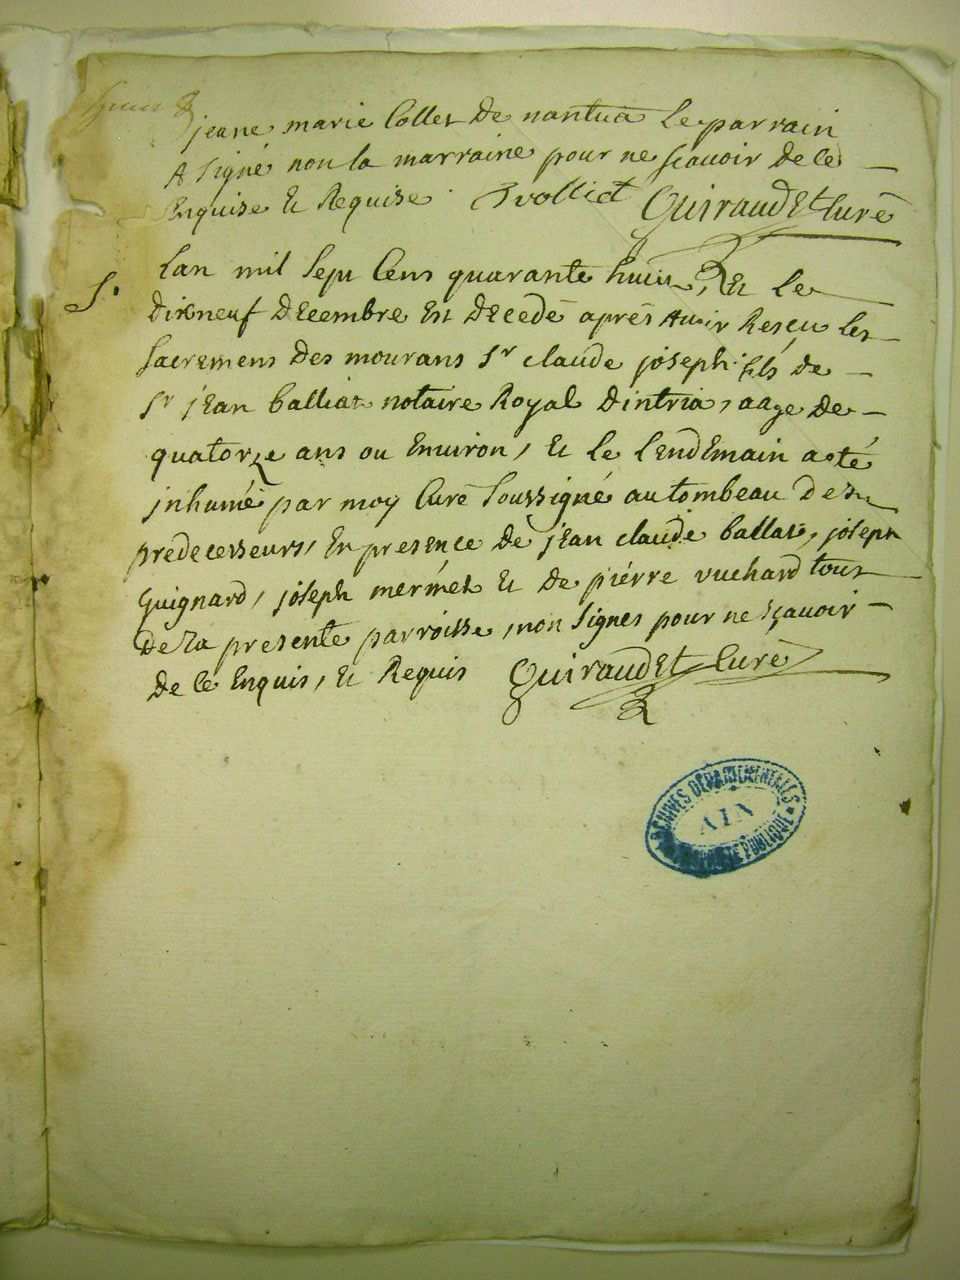 jeane marie Collet De nantua Le parrain
A signé non la marraine pour ne scavoir de ce
Enquise Et Requise.
GuiraudEt Curé
S.
Lan mil sept Cens quarante huit, Et Le
dixneuf DEcembre Est DEcedé aprés Avoir Resçu les
sacremens Des mourans Sr claude joseph fils de
Sr jEan balliat notaire Royal Dintria, aage De
quatorze ans ou Environ, Et Le LEndEmain a eté
jnhumé par moy Curé soussigné au tombeau De ses
predecesseurs, En presence de jEan claude ballat, joseph
Guignard, joseph mermet Et De piérre vuchard tous
De La presente parroisse, non signes pour ne sçavoir
De Ce Enquis, Et Requis GuiraudEt Curé
ARCHIVES DÉPARTEMENTALES
AIN
PUBLIQUE